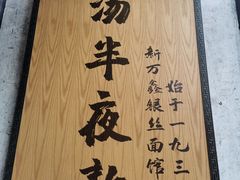 汤半夜
新万鑫银丝面馆
始于一九三